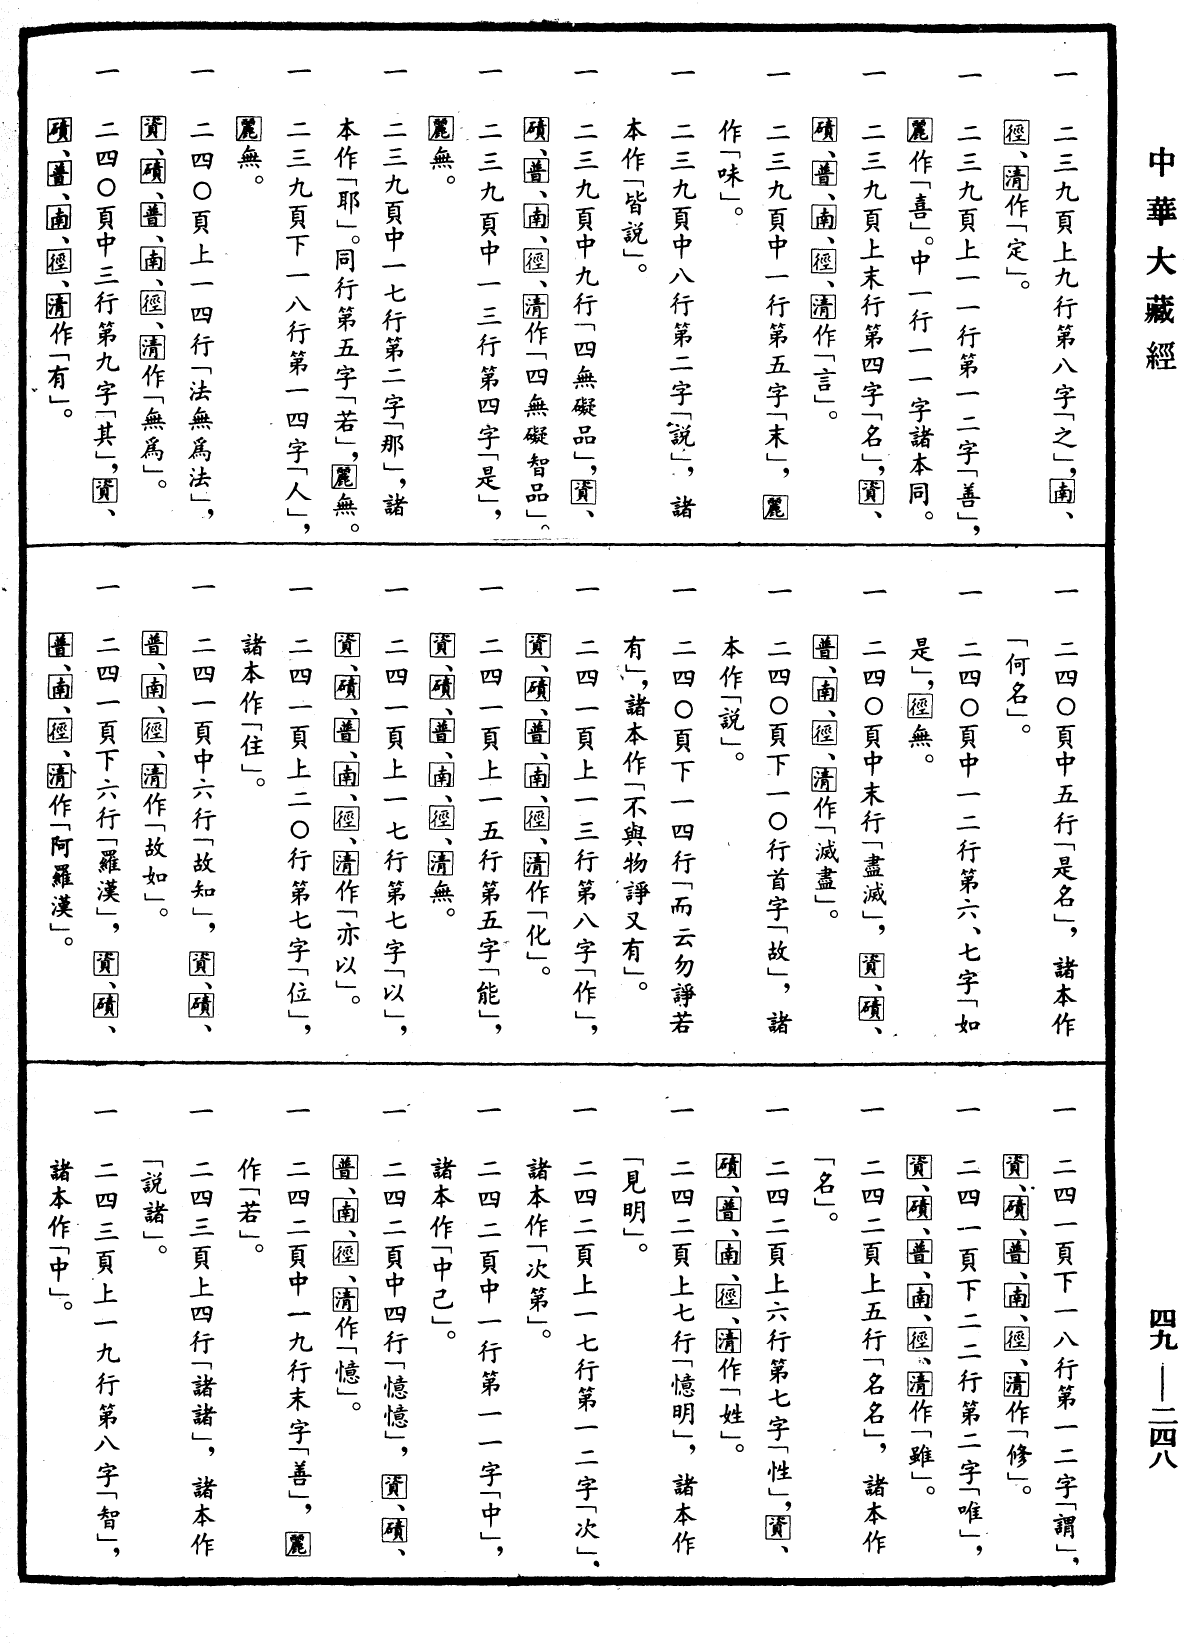 中華大藏經
一　二三九頁上九行第八字「之」，南、
徑、清作「定」。
一　二三九頁上一一行第一二字「善」，
麗作「喜」。中一行一一字諸本同。
一　二三九頁上末行第四字「名」，資、
磧、普、南、徑、清作「言」。
一　二三九頁中一行第五字「末」，麗
作「味」。
一　二三九頁中八行第二字「説」，諸
本作「皆説」。
一　二三九頁中九行「四無礙品」，資、
磧、普、南、徑、清作「四無礙智品」。
一　二三九頁中一三行第四字「是」，
麗無。
一　二三九頁中一七行第二字「那」，諸
本作「耶」。同行第五字「若」，麗無。
一　二三九頁下一八行第一四字「人」，
麗無。
一　二四〇頁上一四行「法無爲法」，
資、磧、普、南、徑、清作「無爲」。
一　二四〇頁中三行第九字「其」，資、
磧、普、南、徑、清作「有」。
一　二四〇頁中五行「是名」，諸本作
「何名」。
一　二四〇頁中一二行第六、七字「如
是」，徑無。
一　二四〇頁中末行「盡滅」，資、磧、
普、南、徑、清作「滅盡」。
一　二四〇頁下一〇行首字「故」，諸
本作「説」。
一　二四〇頁下一四行「而云勿諍若
有」，諸本作「不與物諍又有」。
一　二四一頁上一三行第八字「作」，
資、磧、普、南、徑、清作「化」。
一　二四一頁上一五行第五字「能」，
資、磧、普、南、徑、清無。
一　二四一頁上一七行第七字「以」，
資、磧、普、南、徑、清作「亦以」。
一　二四一頁上二〇行第七字「位」，
諸本作「住」。
一　二四一頁中六行「故知」，資、磧、
普、南、徑、清作「故如」。
一　二四一頁下六行「羅漢」，資、磧、
普、南、徑、清作「阿羅漢」。
一　二四一頁下一八行第一二字「謂」，
資、磧、普、南、徑、清作「修」。
一　二四一頁下二二行第二字「唯」，
資、磧、普、南、徑、清作「雖」。
一　二四二頁上五行「名名」，諸本作
「名」。
一　二四二頁上六行第七字「性」，資、
磧、普、南、徑、清作「姓」。
一　二四二頁上七行「憶明」，諸本作
「見明」。
一　二四二頁上一七行第一二字「次」，
諸本作「次第」。
一　二四二頁中一行第一一字「中」，
諸本作「中己」。
一　二四二頁中四行「憶憶」，資、磧、
普、南、徑、清作「憶」。
一　二四二頁中一九行末字「善」，麗
作「若」。
一　二四三頁上四行「諸諸」，諸本作
「説諸」。
一　二四三頁上一九行第八字「智」，
諸本作「中」。
四九——二四八